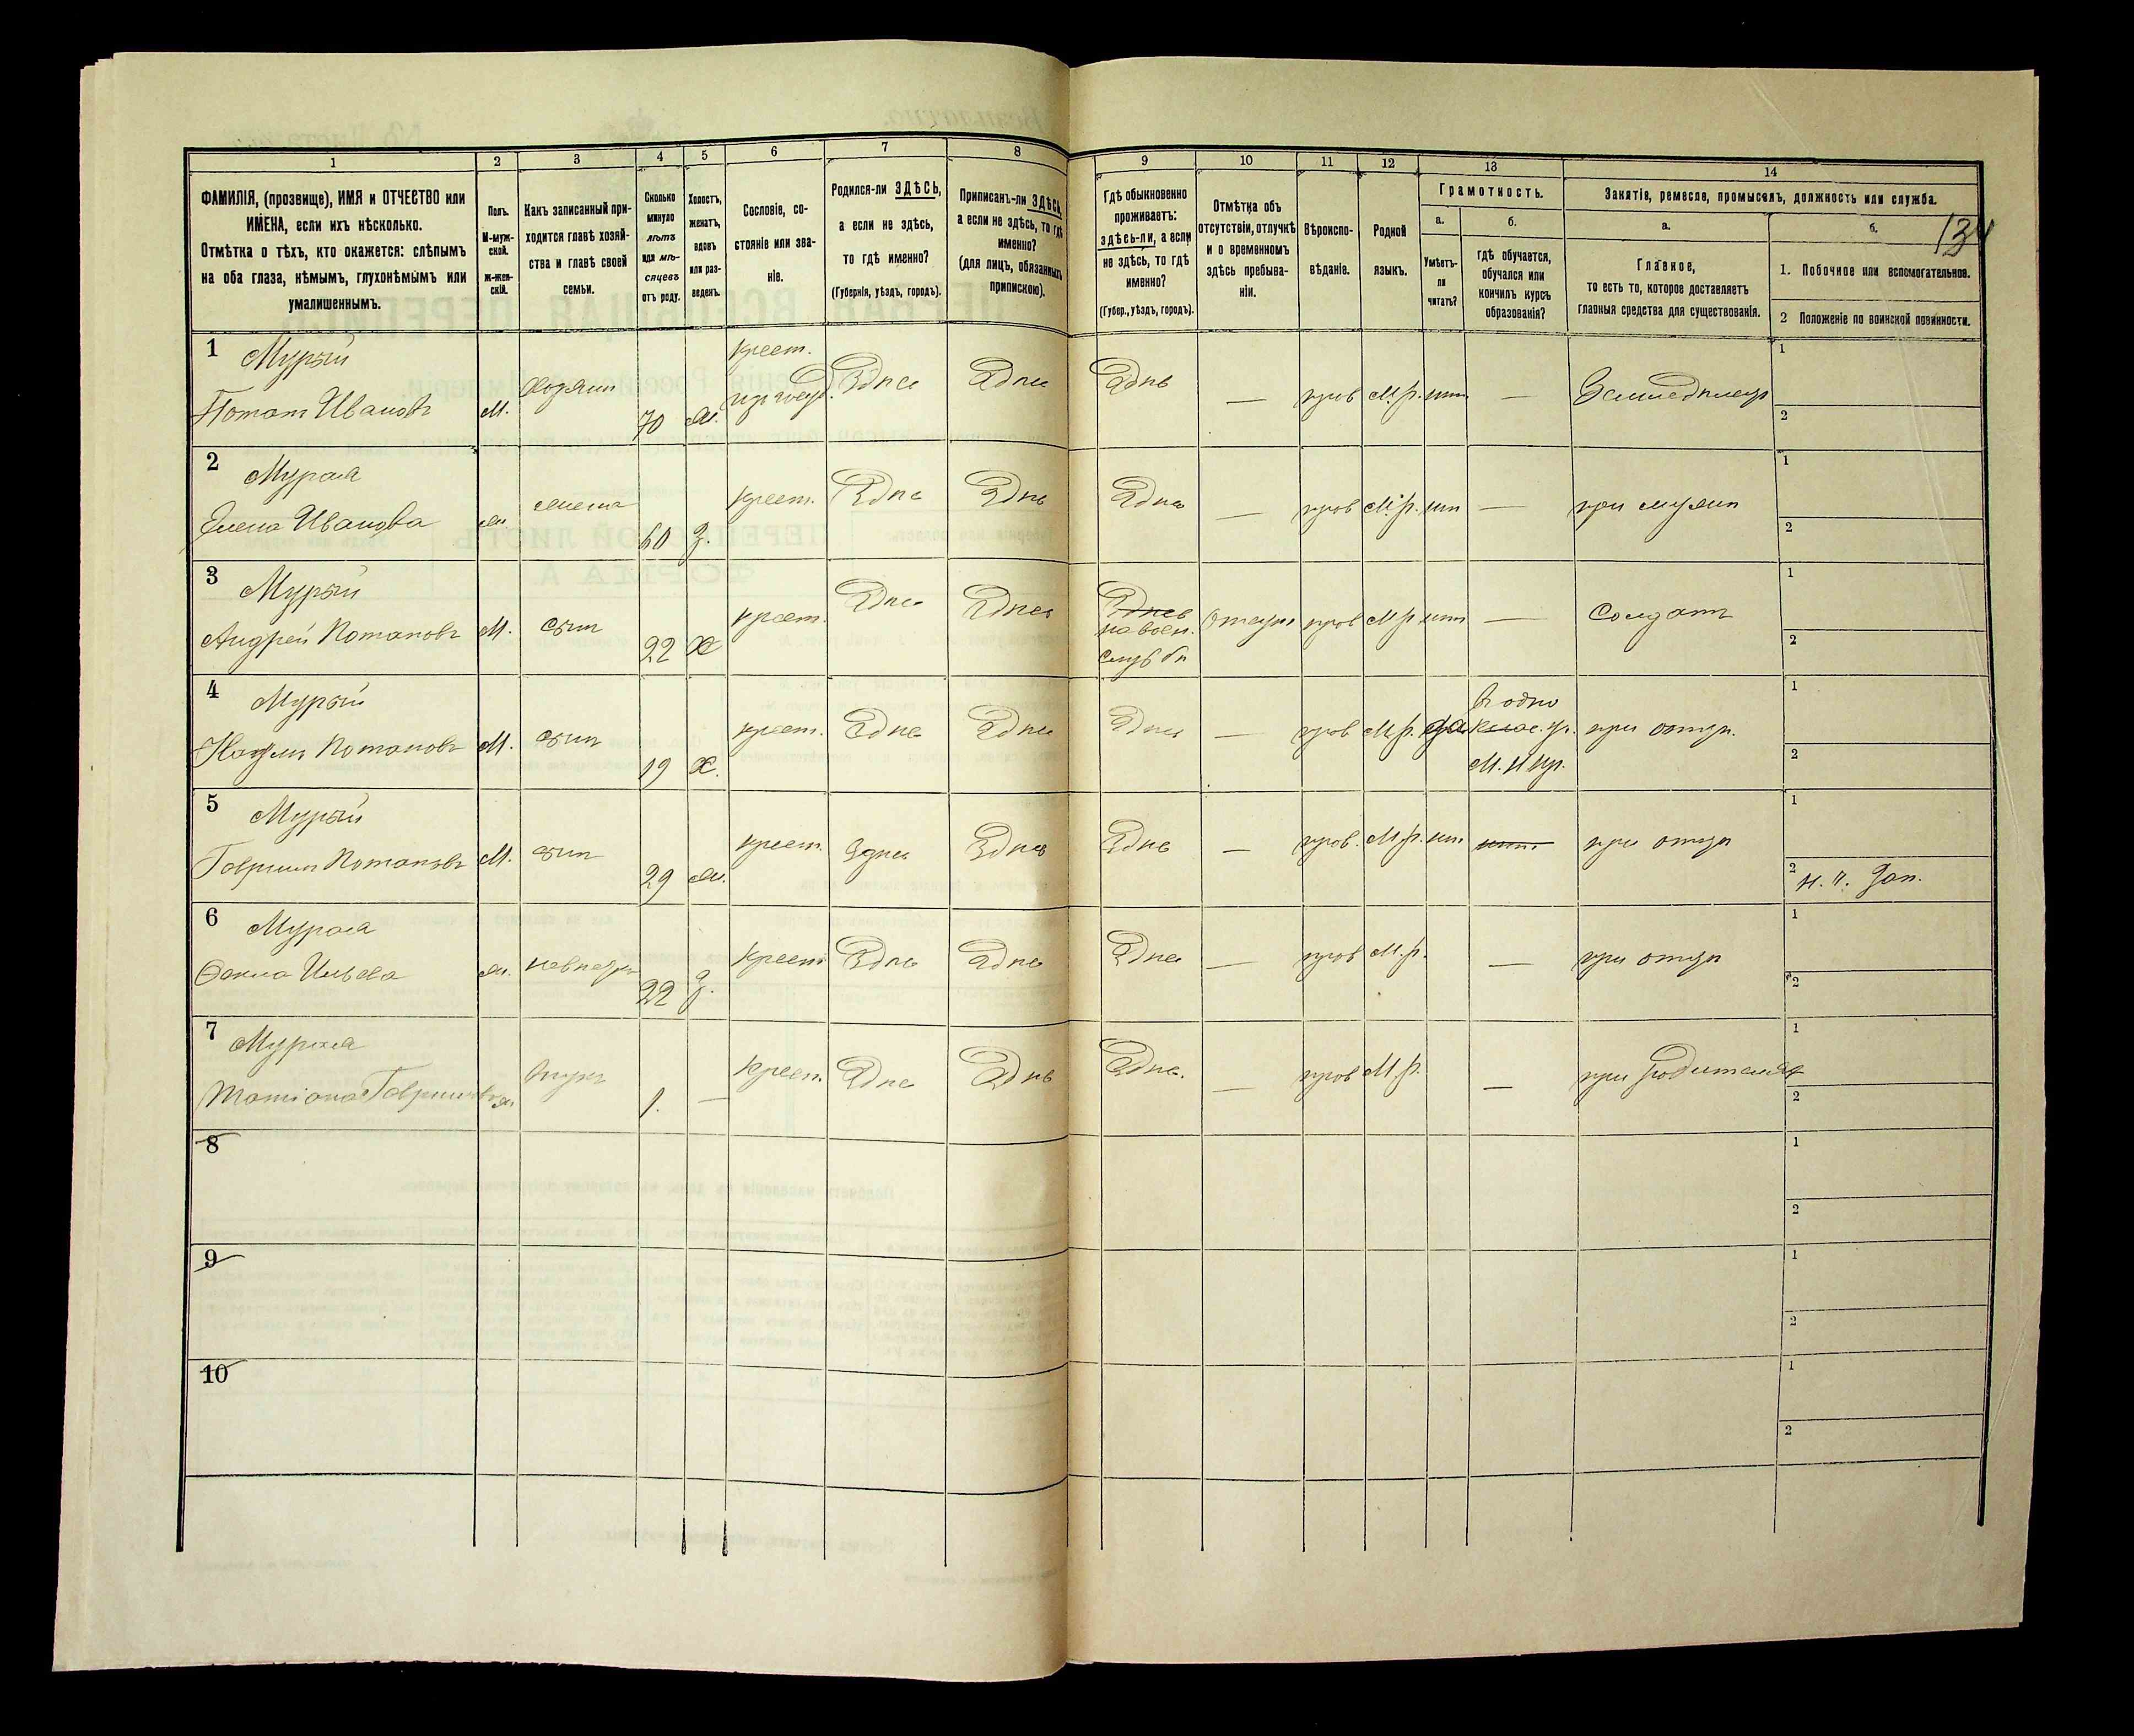 134
1
2
3
4
5
6
7
8
9
10
11
12
13
14
ФАМИЛІЯ, (прозвище), ИМЯ и ОТЧЕСТВО или
ИМЕНА, если ихъ нѣсколько.
Отмѣтка о тѣхъ, кто окажется: слѣпымъ
на оба глаза, нѣмымъ, глухонѣмымъ или
умалишеннымъ.
Полъ.
М-муж-
ской.
ж-жен-
скій.
Какъ записанный при-
ходится главѣ хозяй-
ства и главѣ своей
семьи.
Сколько
минуло
лѣтъ
или мѣ-
сяцевъ
отъ роду.
Холостъ,
женатъ,
вдовъ
или раз-
веденъ.
Сословіе, со-
стояніе или зва-
ніе.
Родился-ли ЗДѢСЬ,
а если не здѣсь,
то гдѣ именно?
(Губернія, уѣздъ, городъ).
Приписанъ-ли ЗДѢСЬ,
а если не здѣсь, то гдѣ
именно?
(для лицъ, обязанныхъ
припискою).
Гдѣ обыкновенно
проживаетъ:
здѣсь-ли, а если
не здѣсь, то гдѣ
именно?
(Губер., уѣздъ, городъ).
Отмѣтка объ
отсутствіи, отлучкѣ
и о временномъ
здѣсь пребыва-
ніи.
Вѣроиспо-
вѣданіе.
Родной
языкъ.
Грамотность.
а.
Умѣетъ-
ли
читать?
б.
гдѣ обучается,
обучался или
кончилъ курсъ
образованія?
Занятія, ремесло, промыселъ, должность или служба.
а.
Главное,
то есть то, которое доставляетъ
главныя средства для существованія.
б.
1. Побочное или вспомогательное.
2 Положеніе по воинской повинности.
1 Мурый
Потап Ивановъ М. хозяин 70 ж. крест. Здпсь Здпсь Здпсь — прав М.р. нпт — Земледплецъ
1
2
2 Мурая
Елена Иванова ж жена 60 З. крест. Здпсь Здпсь Здпсь — прав М.р. нпт — при мужп
1
2
3 Мурый
Андрей Потаповъ М. сын 22 Х крест. Здпсь Здпсь Здпсь
на воен.
службп
прав М.р нпт — Солдатъ
1
2
4 Мурый
Потаповъ М. сын 19 Х. крест. Здпсь Здпсь Здпсь — прав М.р. да
В одно
клас. уч.
М. Н пр.
при отцп.
1
2
5 Мурый
Гаврил Потаповъ М. сын 29 ж. крест. Здпсь Здпсь Здпсь — прав. М.р. нпт нпт при отцп
1
2
6 Мурая
ж. невпстка 22 З. крест Здпсь Здпсь Здпсь — прав М.р. — при отцп
1
2
7 Мурая
Татіана Гаврилова ж внука 1. — крест. Здпсь Здпсь Здпсь. — прав М.р. — при родителях
1
2
8
1
2
9
1
2
10
1
2